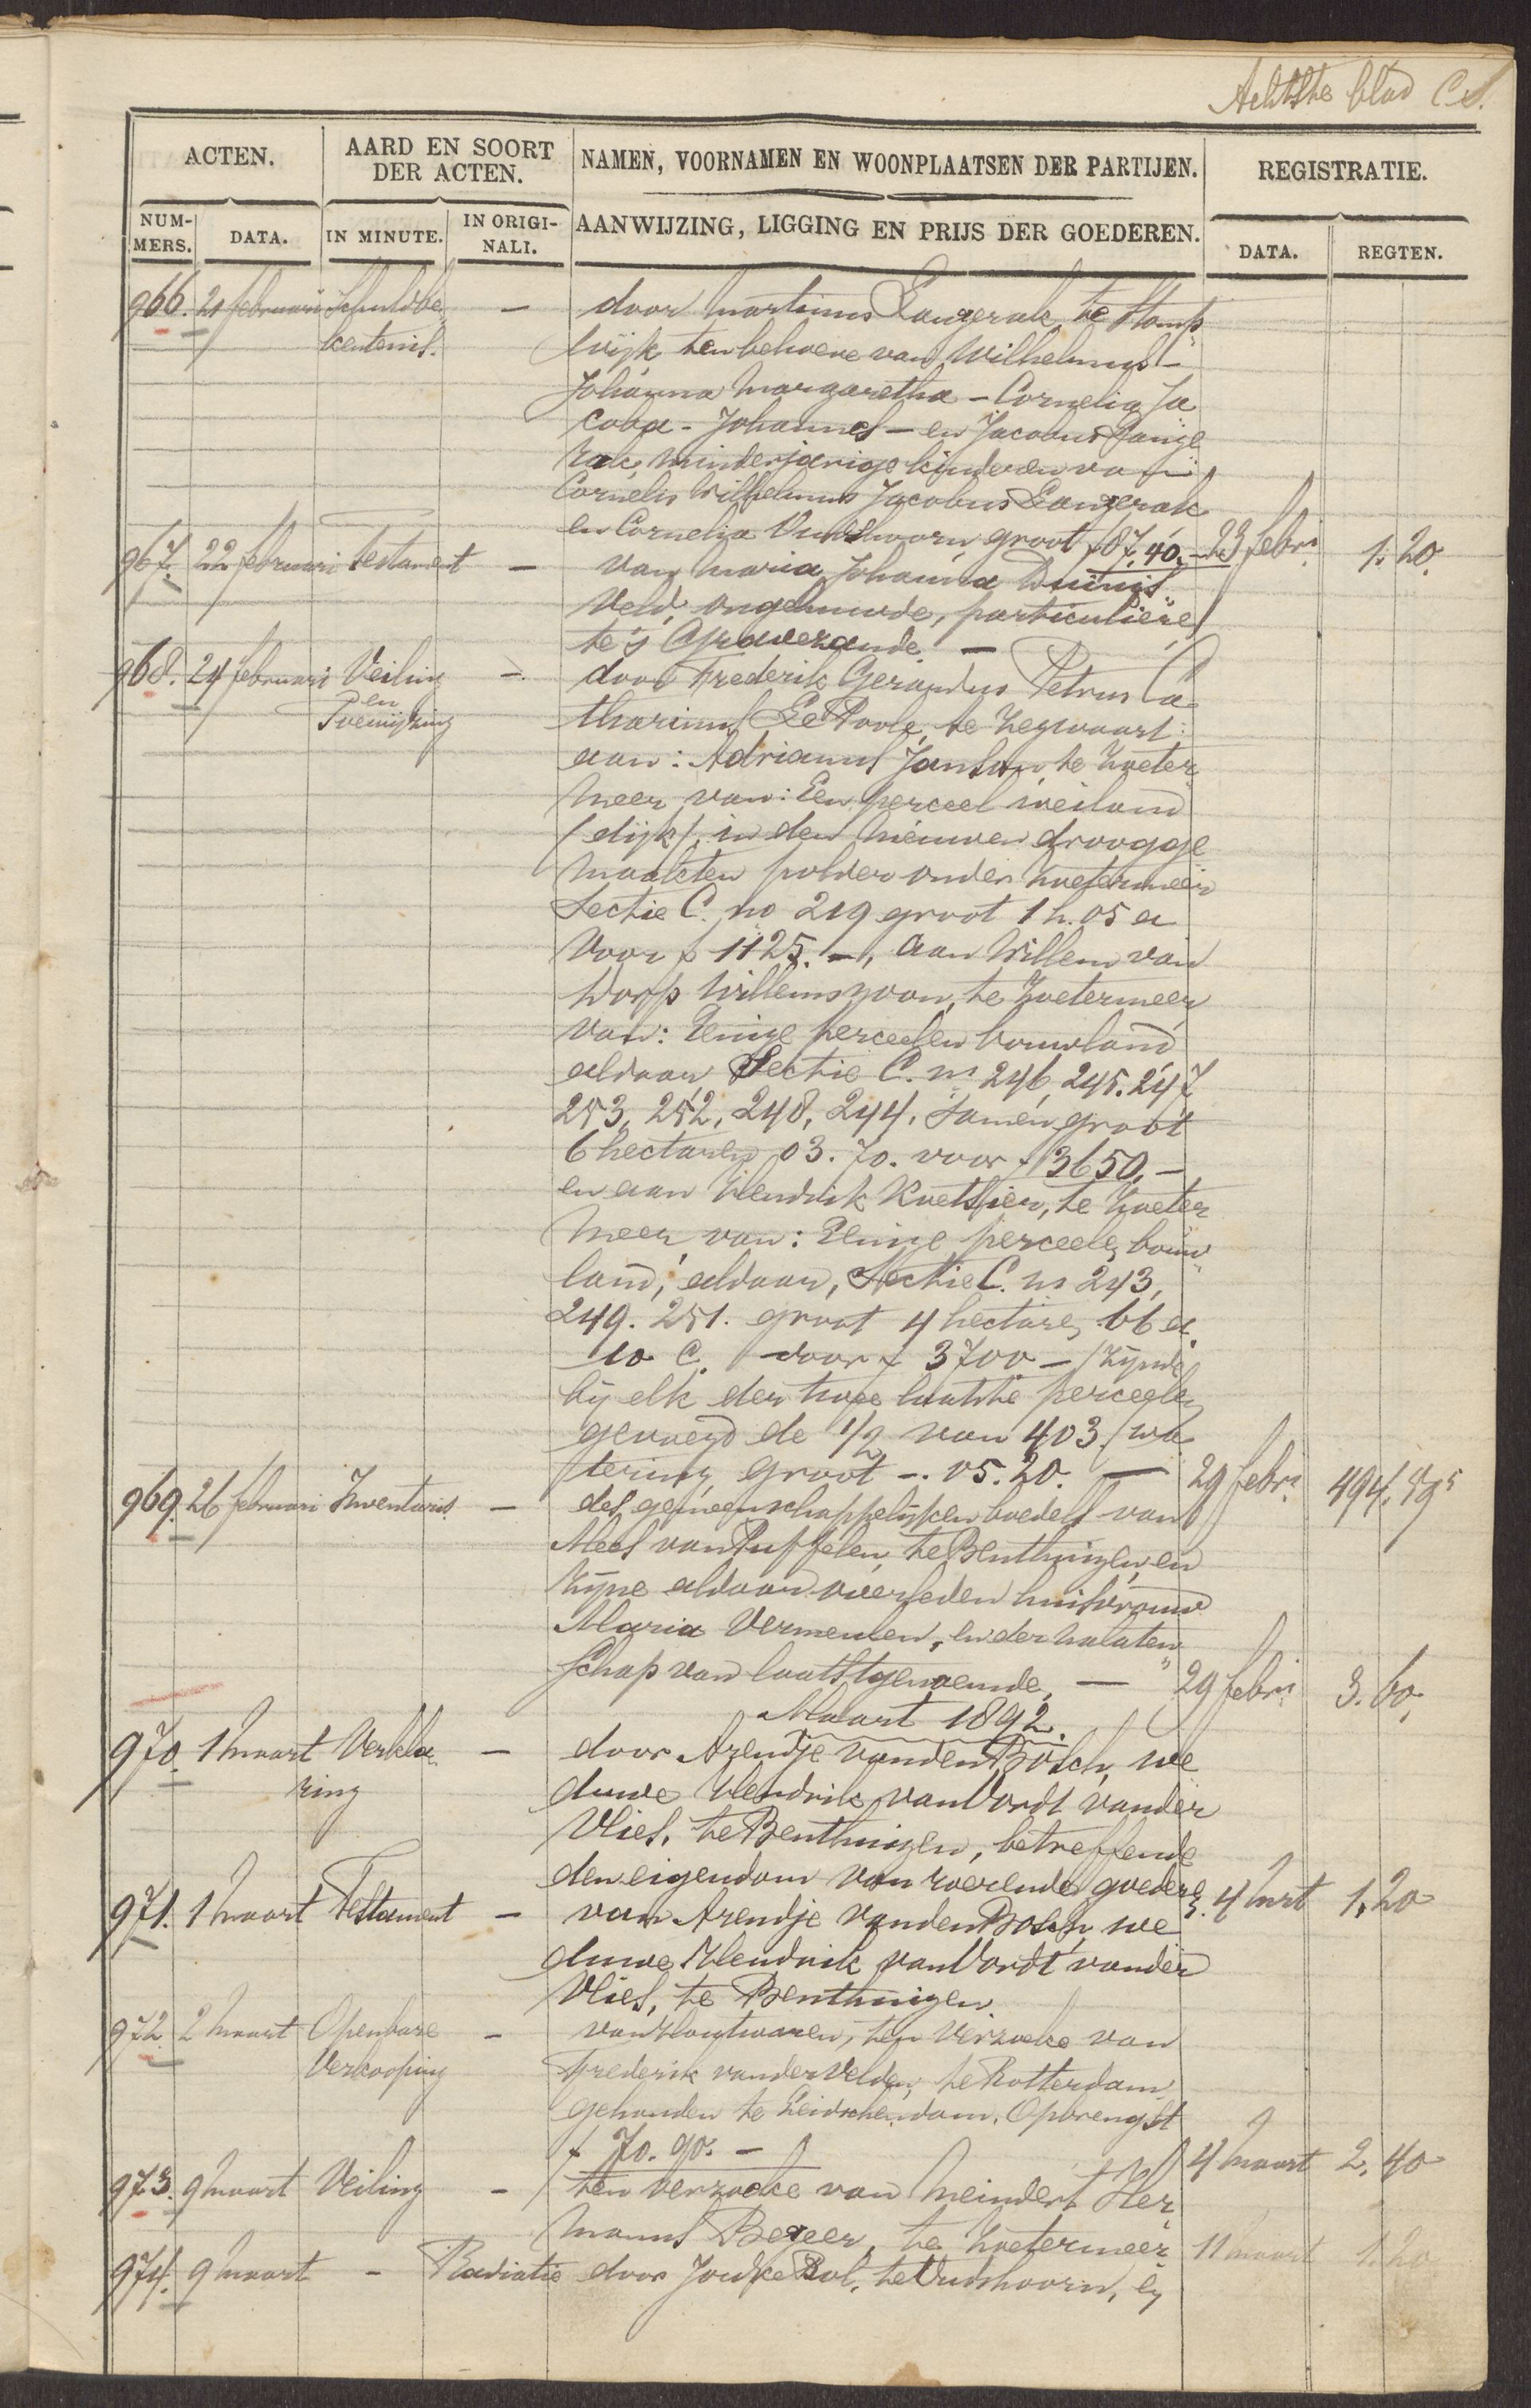 Achtste blad CS.
ACTEN. AARD EN SOORT DER ACTEN. NAMEN, VOORNAMEN EN WOONPLAATSEN DER PARTIJEN. REGISTRATIE.
NUM-MERS. DATA. IN MINUTE. IN ORIGI-NALI. AANWIJZING, LIGGING EN PRIJS DER GOEDEREN. DATA. REGTEN.
966. 21 februari Schuldbe — door Martinus Langerak te Stomp
kentenis. wijk ten behoeve van Wilhelmus -
Johanna Margaretha - Cornelia Ja
coba - Johannes - en Jacobus Lange
rak, minderjarige kinderen van
Cornelis Wilhelmus Jacobus Langerak
en Cornelia Oudshoorn groot f 87,40. - 23 febri 1.20.
967. 22 februari Testament — van Maria Johanna Duinis
veld, ongehuwde, particuliere
te 's Gravezande. —
968. 24 februari Veiling — door Frederik Gerardus Petrus Ca
en
Toewijzing tharinus Le Poole, te Zegwaart:
aan: Adrianus Janson te Zoeter
meer van: Een perceel weiland
(dijk), in den nieuwen droogge
maakten polder onder Zoetermeer
Sectie C. no 219 groot 1 h. 05 a
voor f 1125. -, aan Willem van
Dorp Willemszoon, te Zoetermeer
van: Eenige perceelen bouwland
aldaar Sectie C. ns 246, 245. 247
253, 252, 248, 244. samen groot
6 hectaren 03. 70. voor f 3650, -
en aan Hendrik Koetsier, te Zoeter
meer, van: Eenige perceelen bouw
land, aldaar, Sectie C. ns 243,
249. 251. groot 4 hectaren 66 a.
10 c. voor f 3700 - (zijnde
bij elk der twee laatste perceelen
gevoegd de 1/2 van 403 (wa
tering groot -. 05. 20. — 29 febri 494.895
969. 26 februari Inventaris — des gemeenschappelijken boedels van
Mees van Puffelen, te Benthuizen, en
zijne aldaar overleden huisvrouw
Maria Vermeulen, en der nalaten
schap van laatstgenoemde, — 29 febri 3.60.
Maart 1892.
970. 1 Maart Verkla — door Arendje van den Bosch, we
ring duwe Hendrik van Vordt van der
Vlies, te Benthuizen, betreffende
den eigendom van roerende goederen. 4 Mrt 1,20
971. 1 Maart Testament — van Arendje van den Bosch, we
duwe Hendrik van Vordt van der
Vlies, te Benthuizen.
972. 2 Maart Openbare — van Houtwaren, ten verzoeke van
Verkooping Frederik van der Velden, te Rotterdam
gehouden te Leidschendam. Opbrengst
f 70. 90. — 4 Maart 2,40
973. 9 Maart Veiling — ten verzoeke van Meindert Her
manus Begeer, te Zoetermeer 11 Maart 1.20
974. 9 Maart — Radiatie door Jouke Bol, te Oudshoorn, en